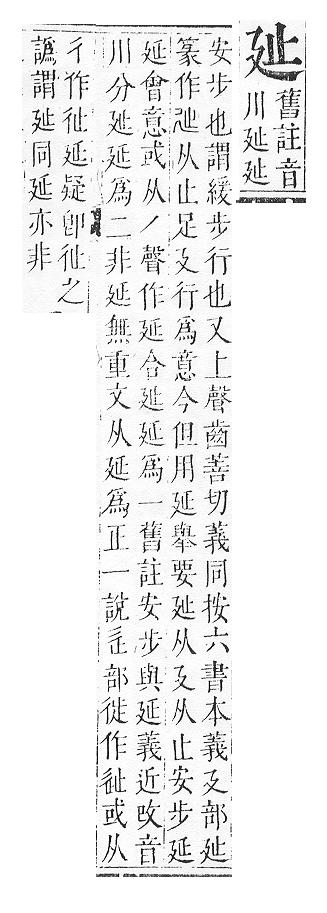 㢟
舊註音
川㢟㢟
安步也謂緩步行也又上聲齒善切義同按六書本義廴部㢟
篆作从止足廴行爲意今但用延舉要㢟从廴从止安步延
延會意或从丿聲作延合㢟延爲一舊註安步與延義近攺音
川分㢟延爲二非延無重文从延爲正一說辵部徙作或从
彳作𢓊㢟疑卽𢓊之
譌謂㢟同延亦非